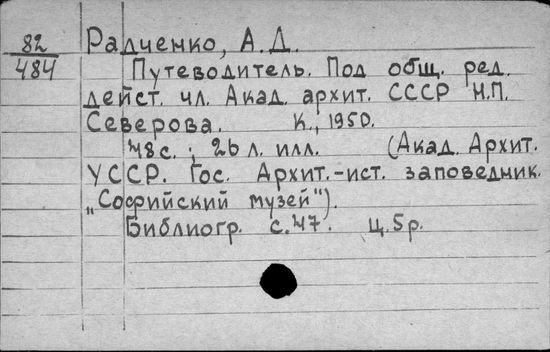 82 Радченко, А.Д.
484 Путеводитель. Под общ. ред.
дейст. чл. Акад. архит. СССР Н.П.
Северова. К., 1950.
48 с. ; 26 л. илл. (Акад. Архит.
УССР. Гос. Архит.-ист. заповедник.
„Софийский музей").
Библиогр. с. 47. Ц. 5 р.